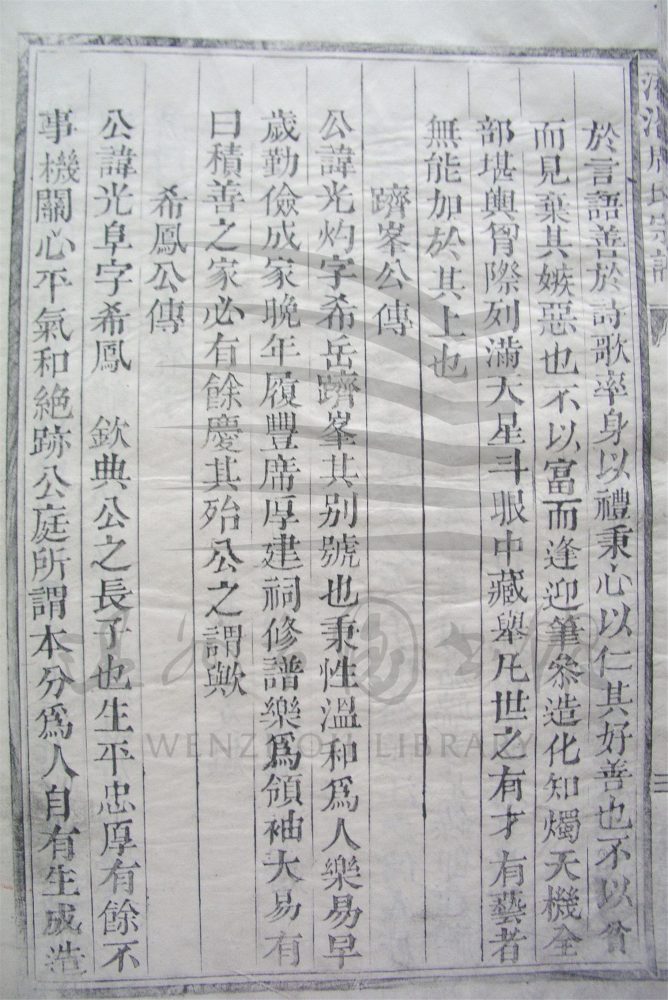 於言語善於詩歌率身以禮秉心以仁其好善也不以貧
而見棄其嫉惡也不以富而逢迎筆參造化知燭天機全
部堪輿胷際列滿天星斗眼中藏舉凡世之有才有藝者
無能加於其上也
躋峯公傳
公諱光灼字希岳躋峯其别號也秉性溫和爲人樂易早
歲勤儉成家晚年履豐席厚建祠修譜樂爲領袖大易有
曰積善之家必有餘慶其殆公之謂歟
希鳳公傳
公諱光阜字希鳳 欽典公之長子也生平忠厚有餘不
事機關心平氣和絶跡公庭所謂本分爲人自有生成造
WENZHOU LIBRARY